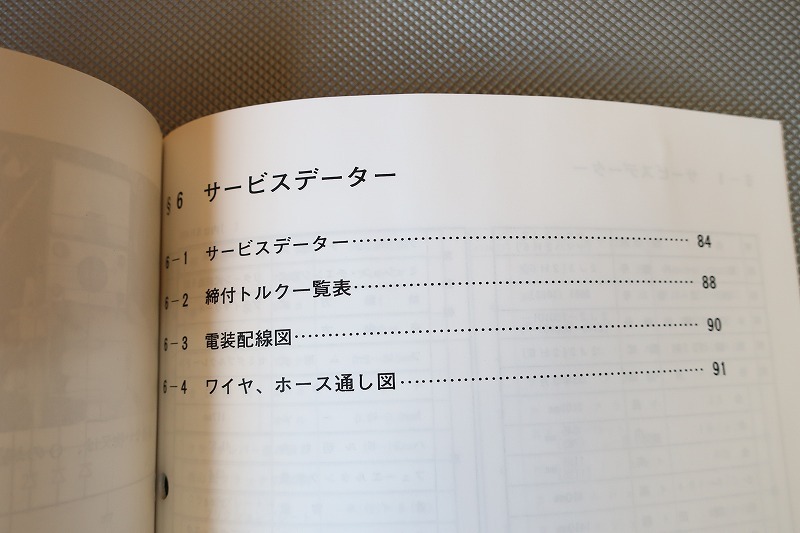 §6 サービスデーター
6-1 サービスデーター……………………………………………84
6-2 締付トルク一覧表……………………………………………88
6-3 電装配線図……………………………………………………90
6-4 ワイヤ、ホース通し図………………………………………91